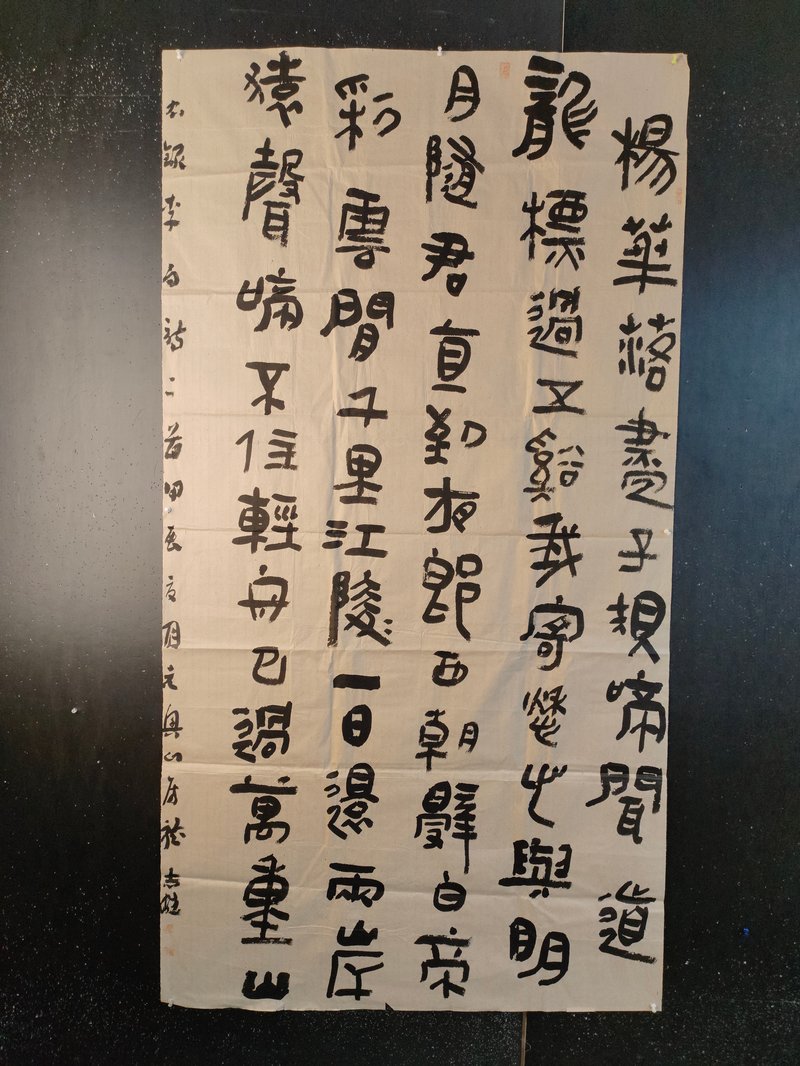 楊華落盡子規啼聞道
龍標過五谿我寄愁心與明
月隨君直到夜郎西朝辭白帝
彩雲閒千里江陵一日還兩岸
猿聲啼不住輕舟已過萬重山
右錄李白詩二首甲辰夏月山房志雄